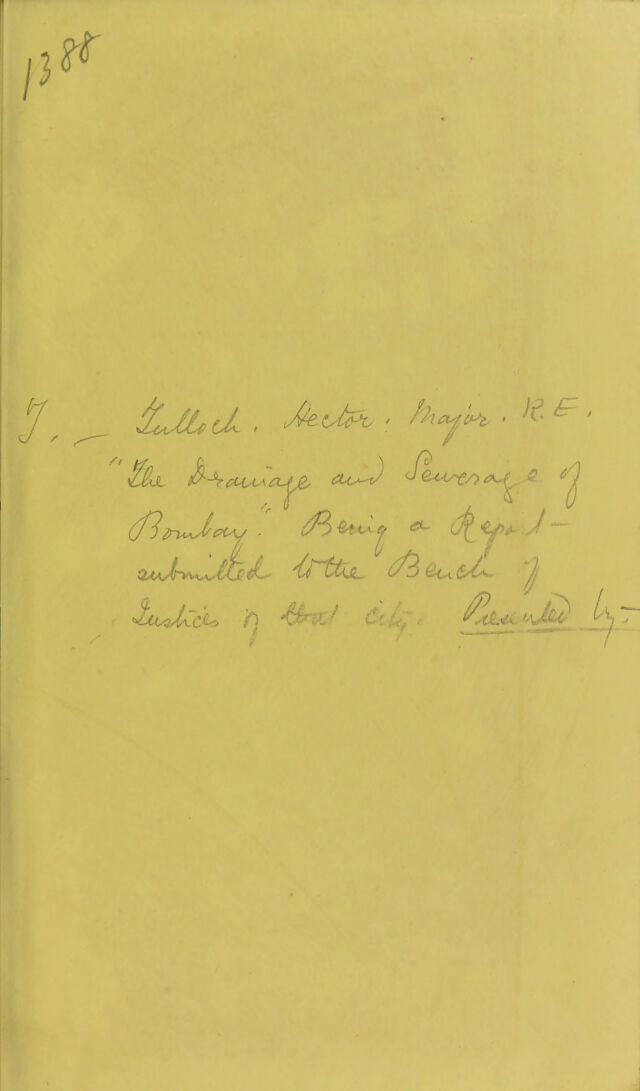 1388
T. — Tulloch. Hector. Major. R.E.
"The Drainage and Sewerage of
Bombay". Being a Report
submitted to the Bench of
Justices of that city. Presented by-